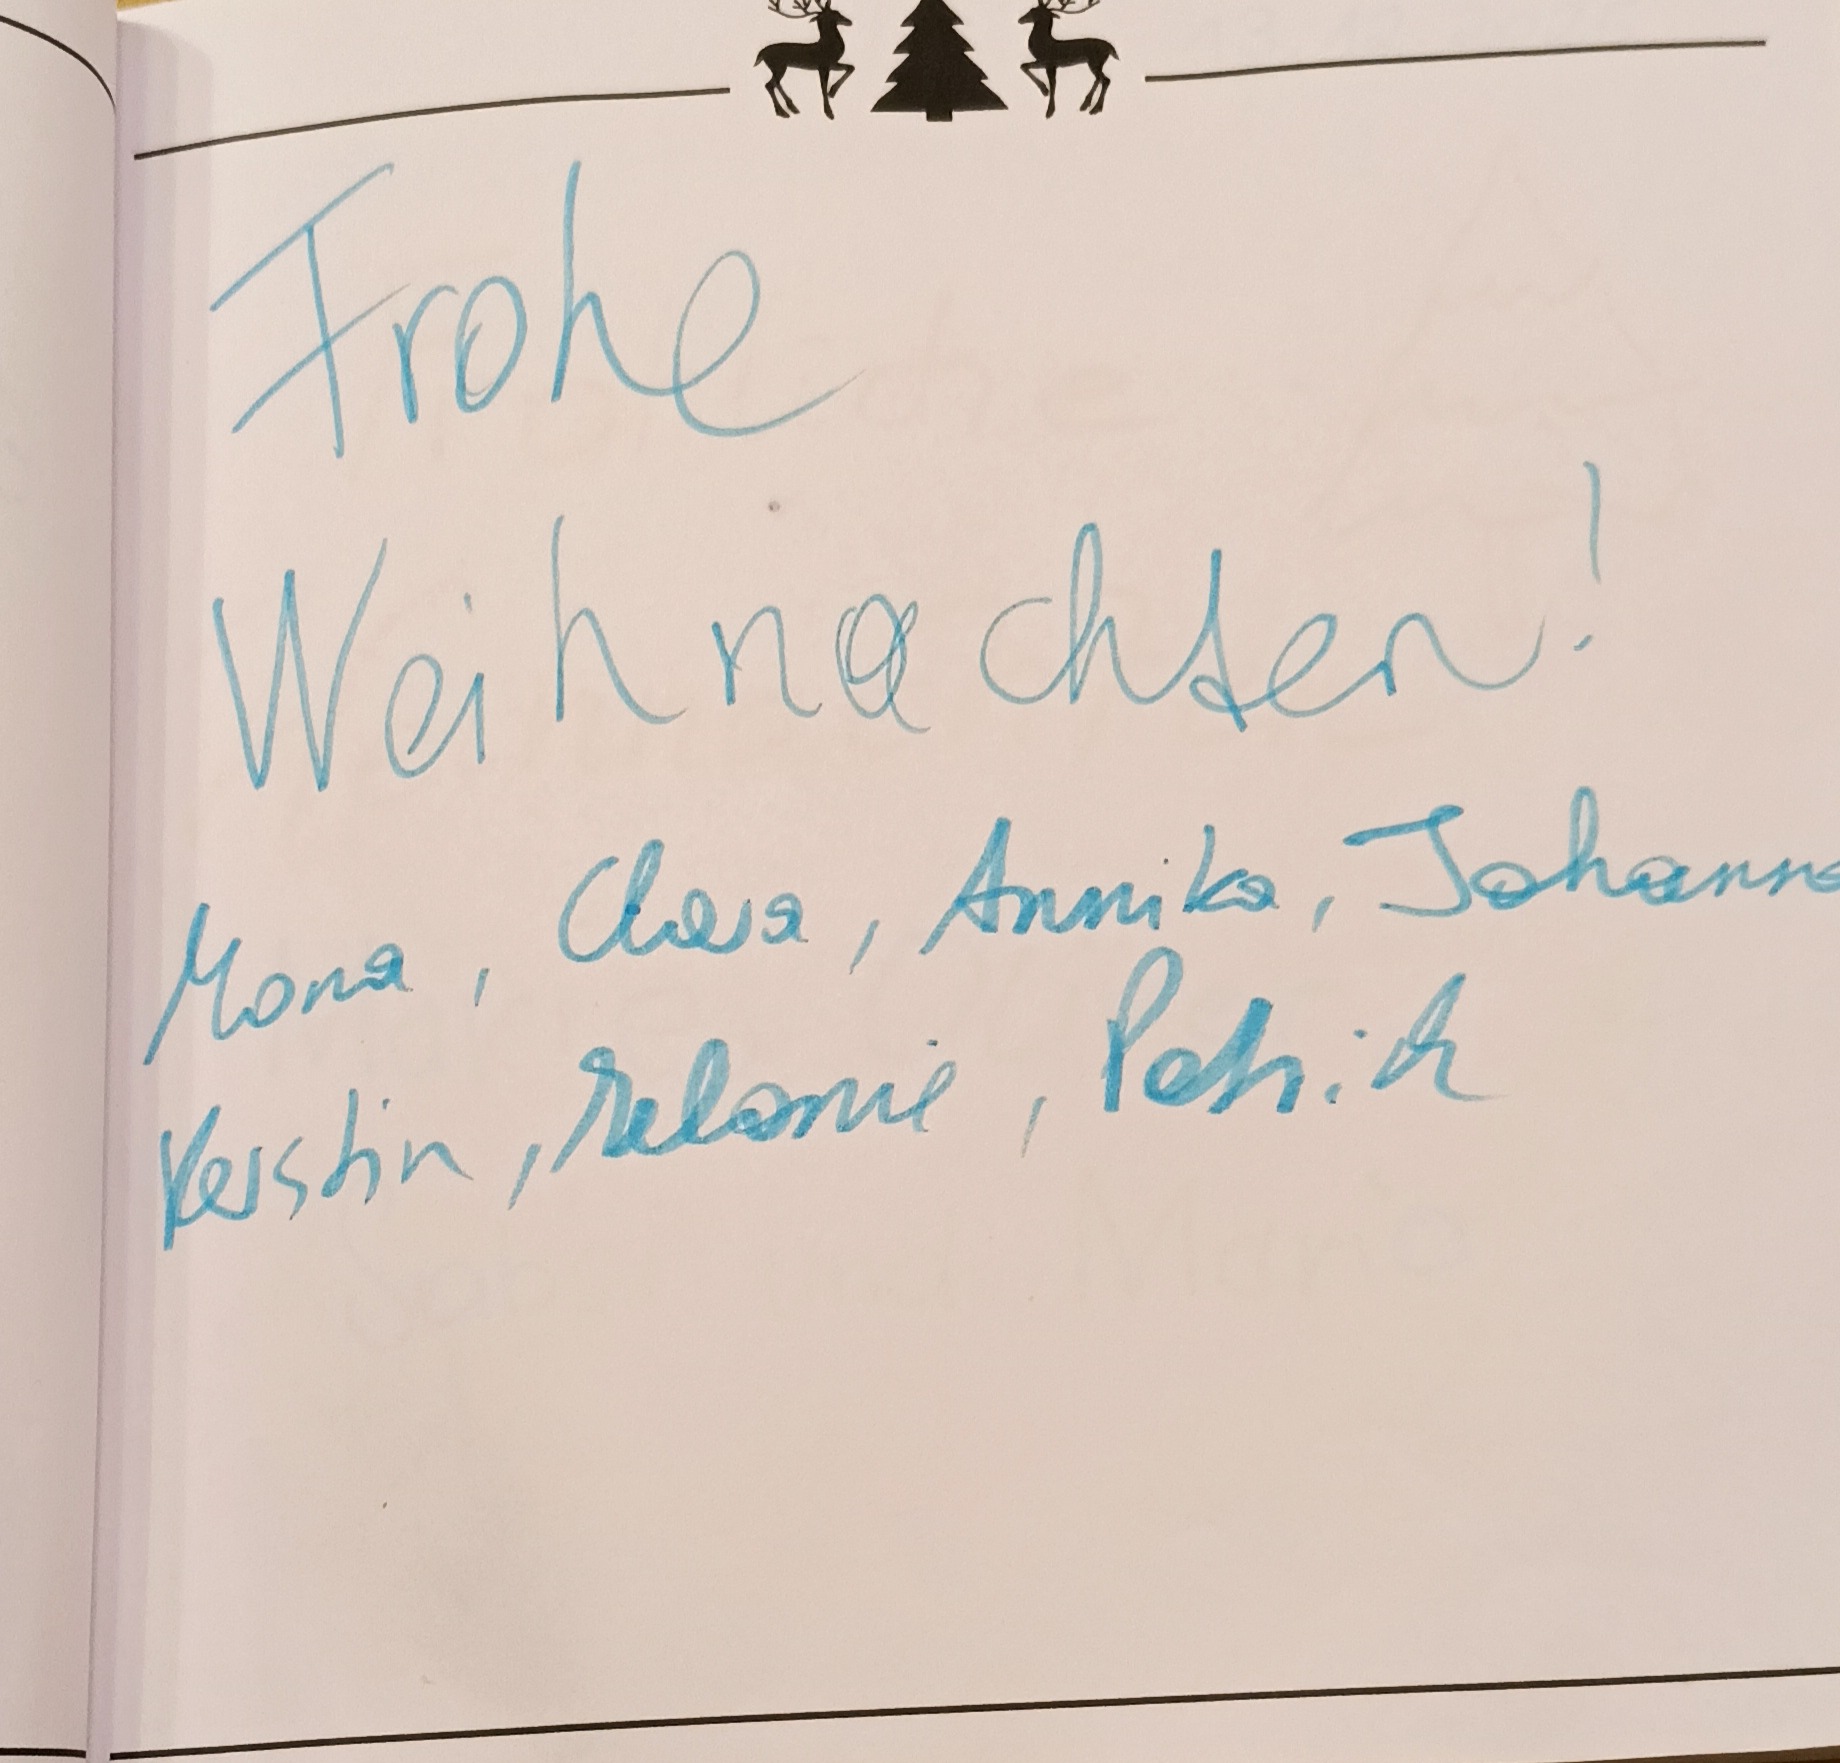 Frohe
Weihnachten!
Mona, Clara, Annika, Johanna
Kerstin, Melanie, Patrick